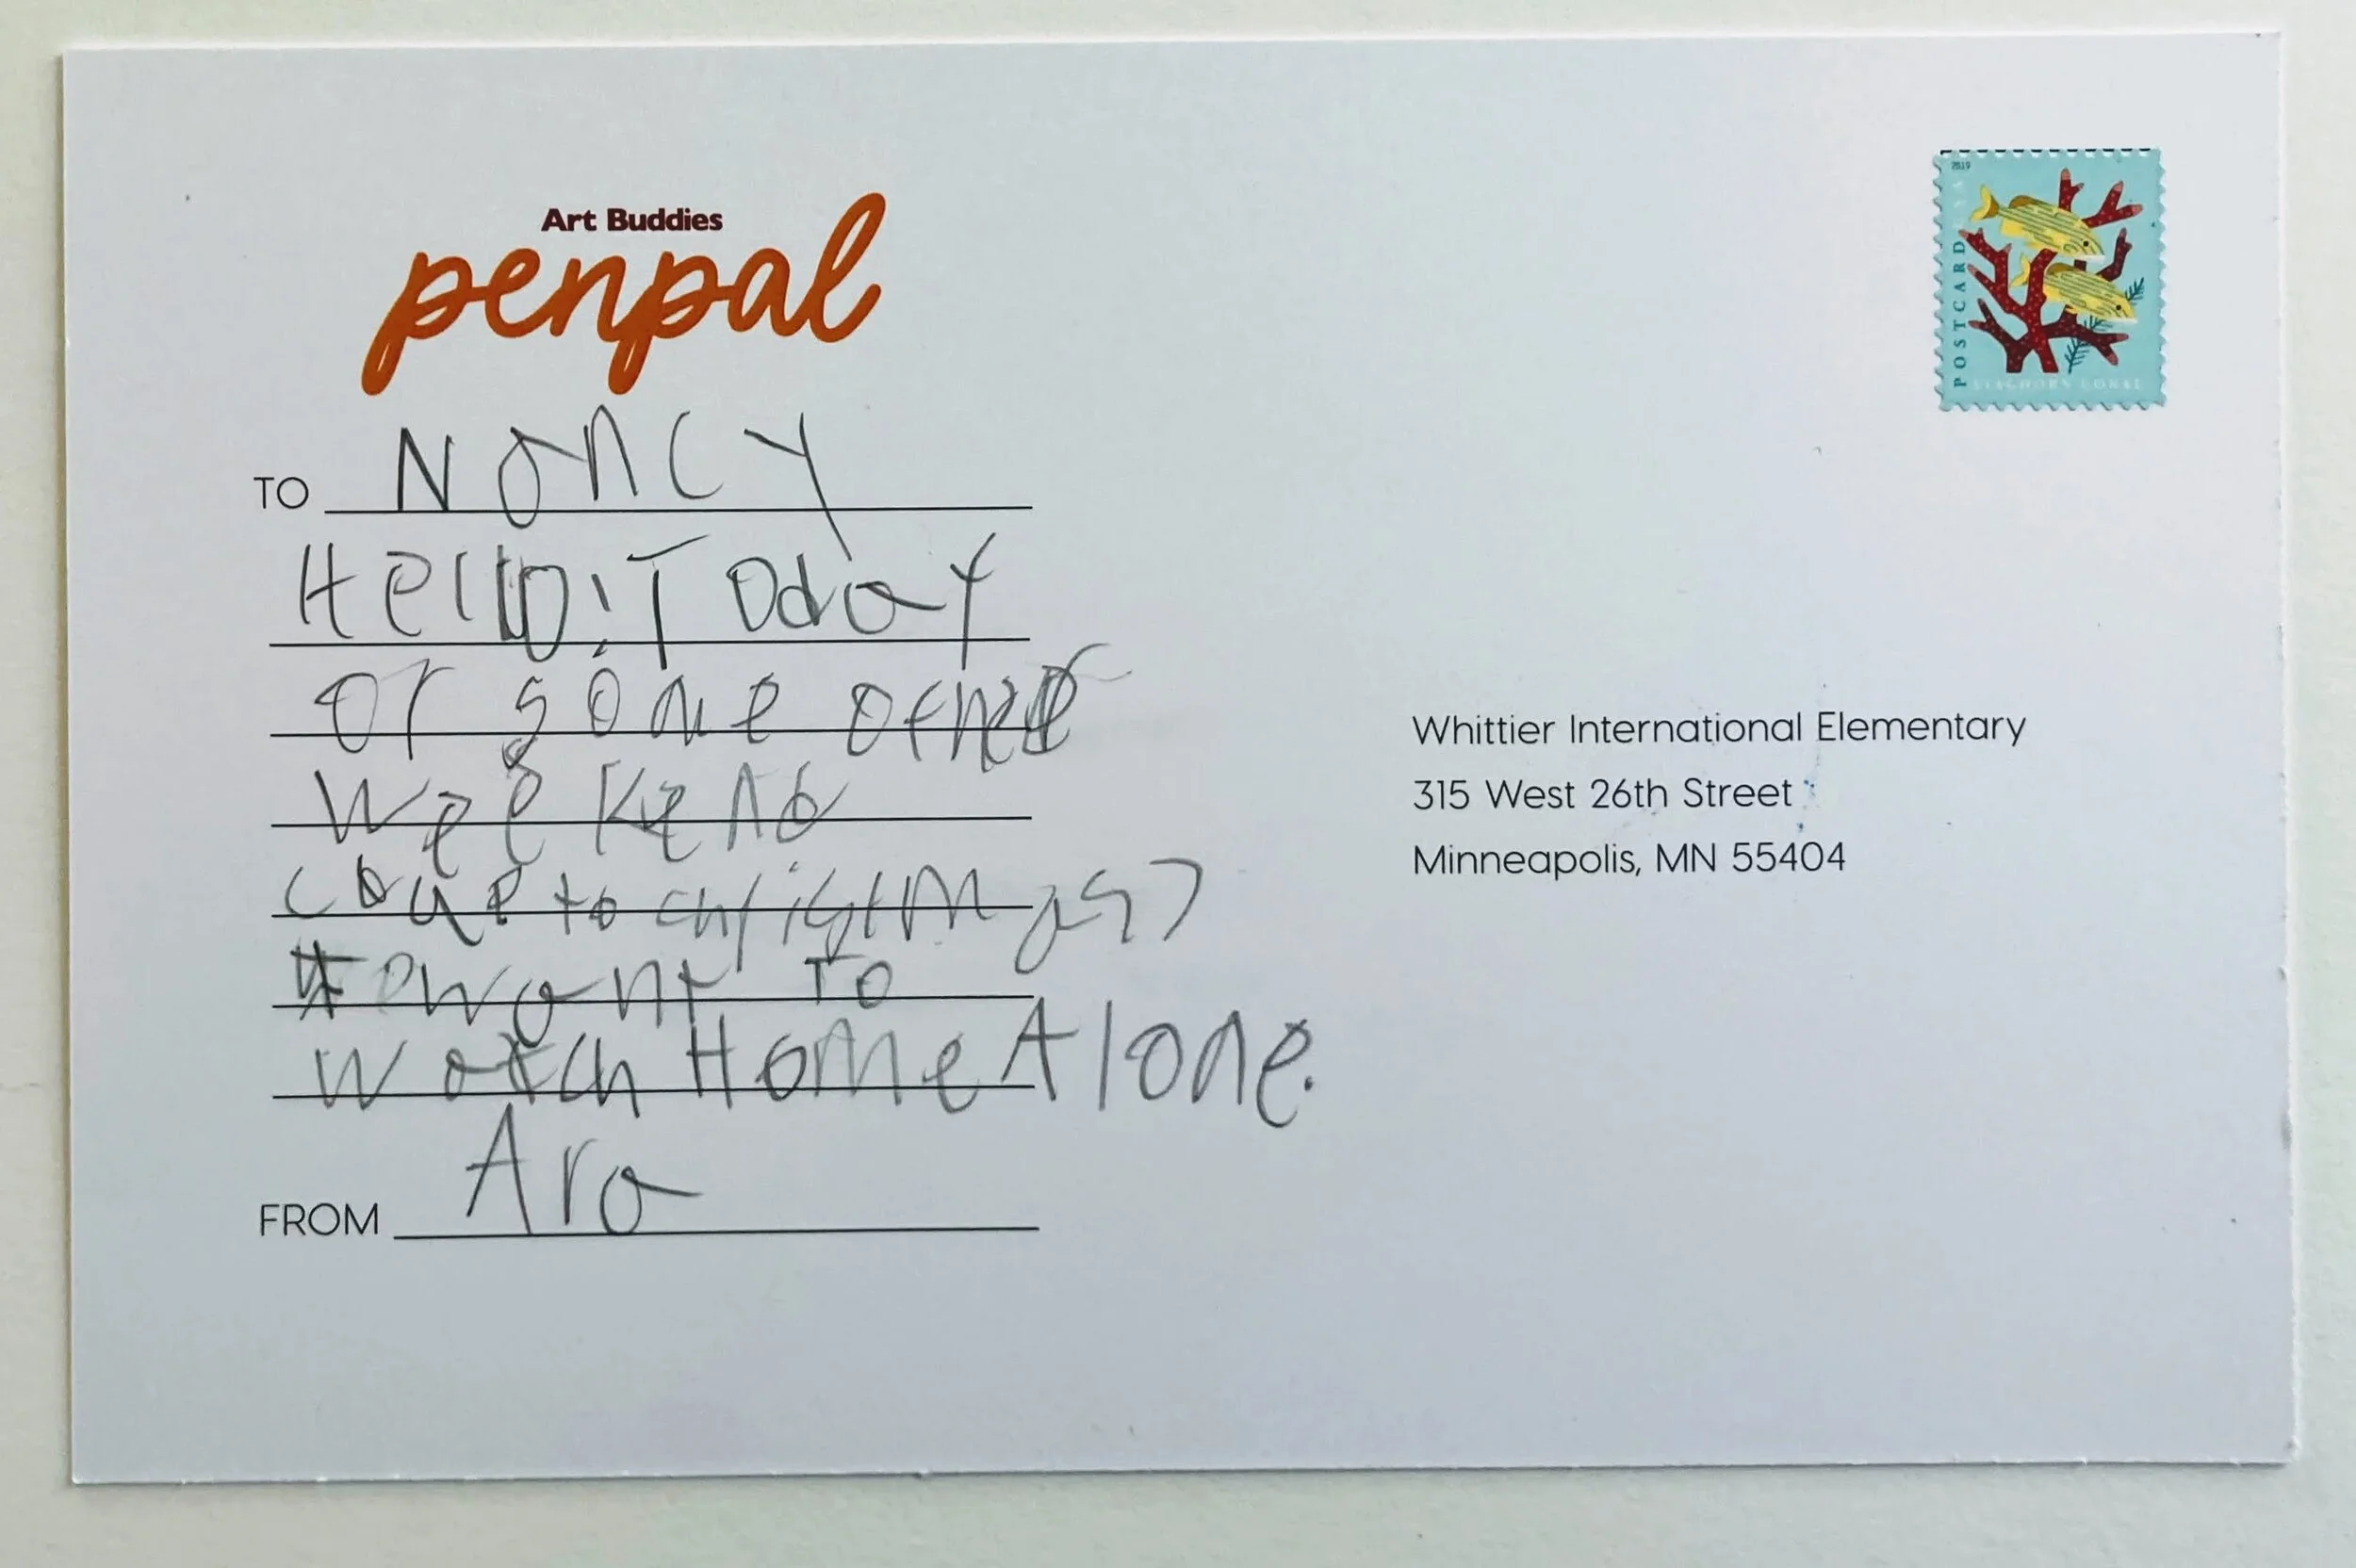 Art Buddies
penpal
TO Nancy
Hello! Today
or some other
weekend
to christmas?
want to
watch Home Alone.
FROM Ara
2019
POSTCARD
STAGHORN CORAL
Whittier International Elementary
315 West 26th Street
Minneapolis, MN 55404